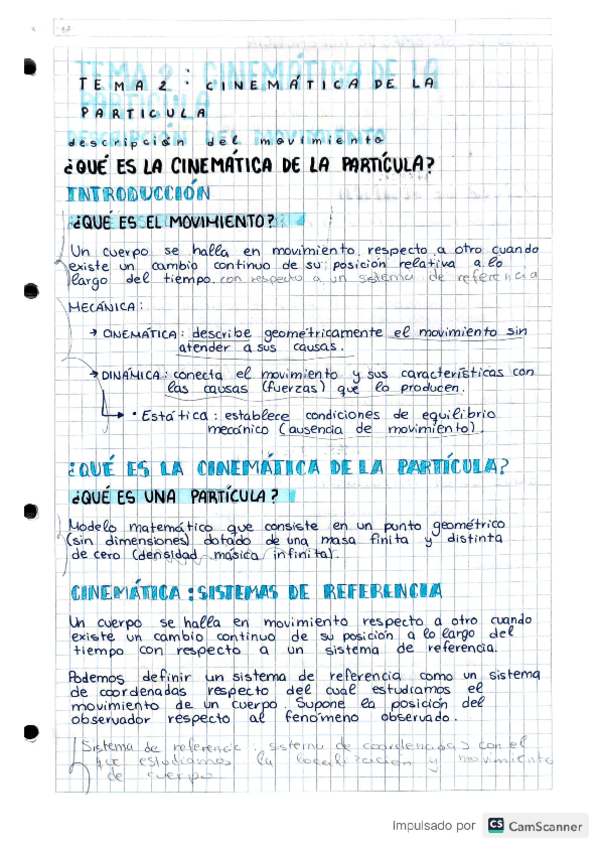 TEMA 2: CINEMÁTICA DE LA
PARTICULA
descripción del movimiento
¿QUÉ ES LA CINEMÁTICA DE LA PARTÍCULA?
INTRODUCCIÓN
¿QUÉ ES EL MOVIMIENTO?
Un cuerpo se halla en movimiento respecto a otro cuando
existe un cambio continuo de su posición relativa a lo
largo del tiempo. con respecto a un sistema de referencia
MECÁNICA:
→ CINEMÁTICA: describe geométricamente el movimiento sin
atender a sus causas.
→ DINÁMICA: conecta el movimiento y sus características con
las causas (fuerzas) que lo producen.
→ • Estática: establece condiciones de equilibrio
mecánico (ausencia de movimiento).
¿QUÉ ES LA CINEMÁTICA DE LA PARTÍCULA?
¿QUÉ ES UNA PARTÍCULA?
Modelo matemático que consiste en un punto geométrico
(sin dimensiones) dotado de una masa finita y distinta
de cero (densidad másica infinita).
CINEMÁTICA: SISTEMAS DE REFERENCIA
Un cuerpo se halla en movimiento respecto a otro cuando
existe un cambio continuo de su posición a lo largo del
tiempo con respecto a un sistema de referencia.
Podemos definir un sistema de referencia como un sistema
de coordenadas respecto del cual estudiamos el
movimiento de un cuerpo. Supone la posición del
observador respecto al fenómeno observado.
Sistema de referencia: sistema de coordenadas con el
que estudiamos la localización y movimiento
de cuerpo
Impulsado por CS CamScanner